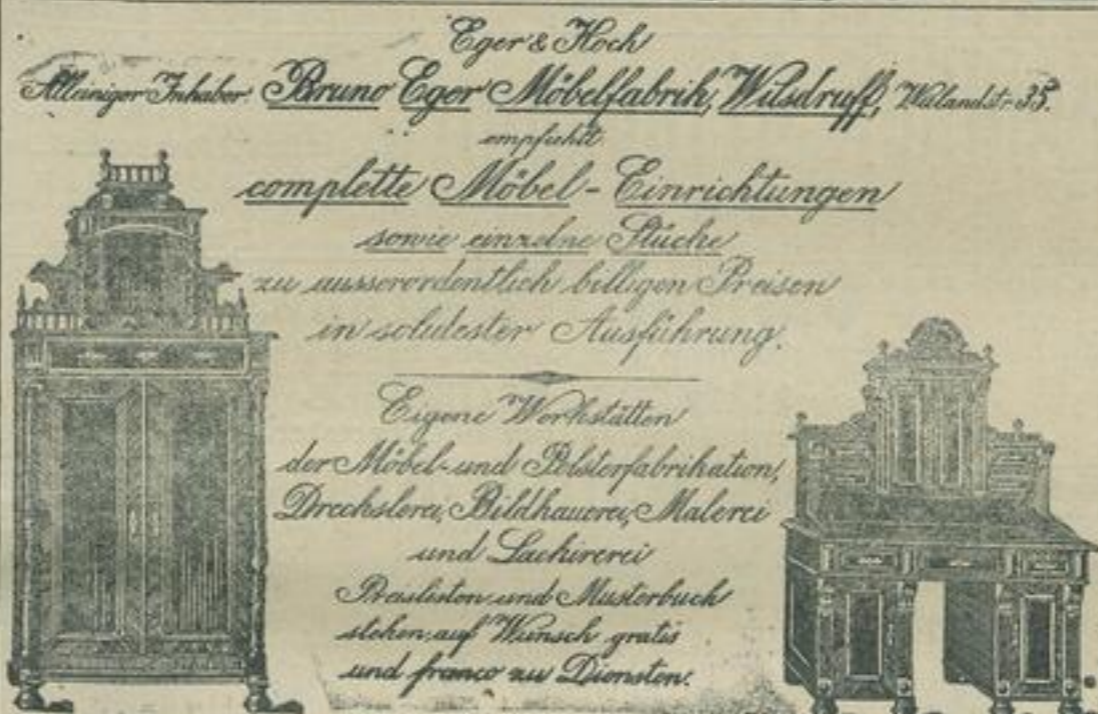 Eger & Koch
Alleiniger Inhaber: Bruno Eger Möbelfabrik, Wilsdruff, Wielandstr. 35.
empfiehlt
complette Möbel-Einrichtungen
sowie einzelne Stücke
zu ausserordentlich billigen Preisen
in solidester Ausführung.
Eigene Werkstätten
der Möbel- und Polsterfabrikation,
Drechslerei, Bildhauerei, Malerei
und Lackirerei
Preislisten und Musterbuch
stehen auf Wunsch gratis
und franco zu Diensten.